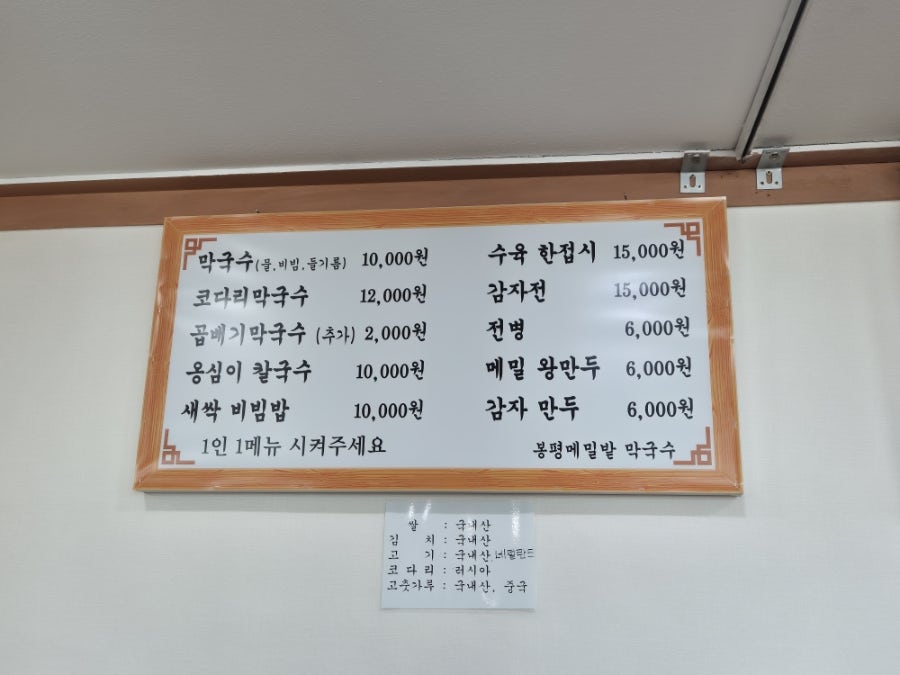 막국수(물.비빔.들기름) 10,000원
코다리막국수 12,000원
곱배기막국수 (추가) 2,000원
옹심이 칼국수 10,000원
새싹 비빔밥 10,000원
1인 1메뉴 시켜주세요
수육 한접시 15,000원
감자전 15,000원
전병 6,000원
메밀 왕만두 6,000원
감자 만두 6,000원
봉평메밀밭 막국수
쌀 : 국내산
김 치 : 국내산
고 기 : 국내산, 네덜란드
코 다 리 : 러시아
고춧가루 : 국내산, 중국